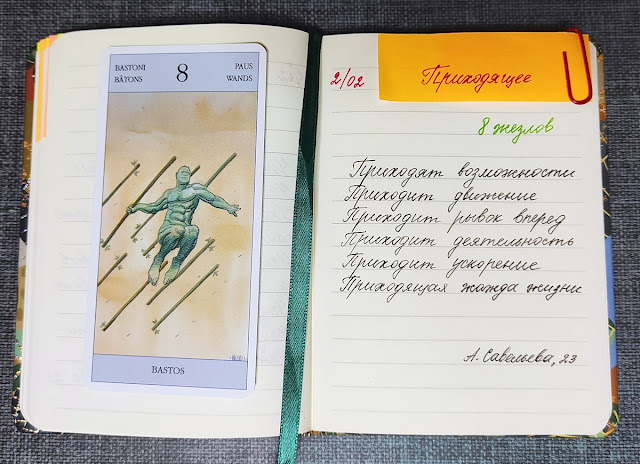 BASTONI
BÂTONS
8
PAUS
WANDS
BASTOS
2/02
Приходящее
8 жезлов
Приходят возможности
Приходит движение
Приходит рывок вперед
Приходит деятельность
Приходит ускорение
Приходящая жажда жизни
А. Савельева, 23